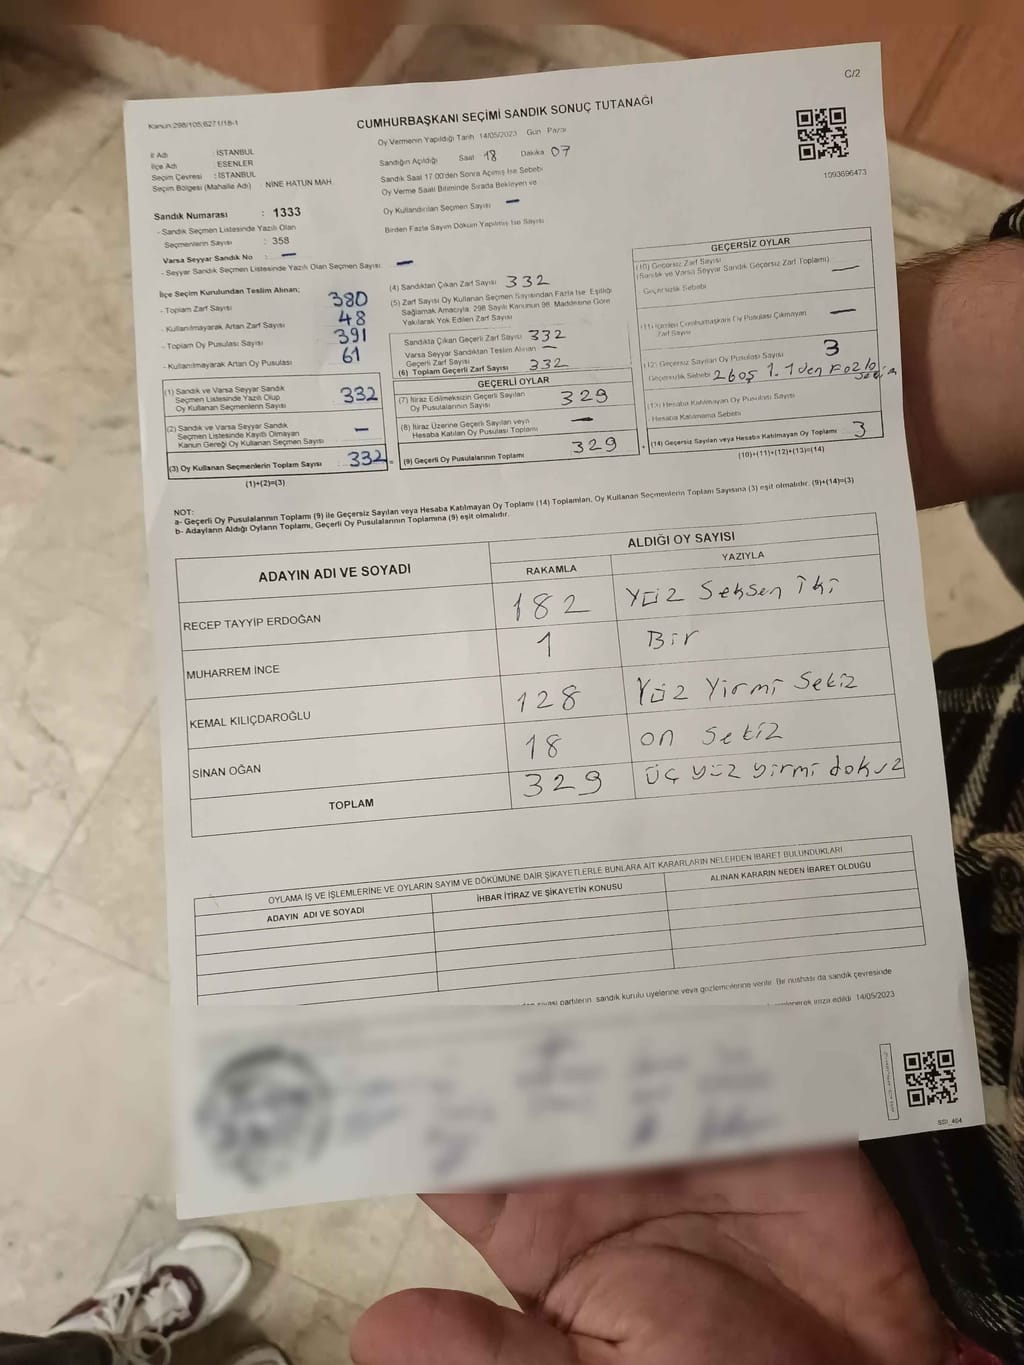 C/2
Kanun:298/105,6271/18-1
CUMHURBAŞKANI SEÇİMİ SANDIK SONUÇ TUTANAĞI
Oy Vermenin Yapıldığı Tarih 14/05/2023 Gün Pazar
İl Adı : İSTANBUL
İlçe Adı : ESENLER
Seçim Çevresi : İSTANBUL
Seçim Bölgesi (Mahalle Adı) : NİNE HATUN MAH.
Sandığın Açıldığı Saat 18 Dakika 07
Sandık Saat 17.00'den Sonra Açımış İse Sebebi
Oy Verme Saati Bitiminde Sırada Bekleyen ve
Oy Kullandırılan Seçmen Sayısı —
Birden Fazla Sayım Döküm Yapılmış İse Sayısı
1093696473
Sandık Numarası : 1333
- Sandık Seçmen Listesinde Yazılı Olan
Seçmenlerin Sayısı : 358
Varsa Seyyar Sandık No : —
- Seyyar Sandık Seçmen Listesinde Yazılı Olan Seçmen Sayısı: —
İlçe Seçim Kurulundan Teslim Alınan;
- Toplam Zarf Sayısı 380
- Kullanılmayarak Artan Zarf Sayısı 48
- Toplam Oy Pusulası Sayısı 391
- Kullanılmayarak Artan Oy Pusulası 61
(1) Sandık ve Varsa Seyyar Sandık
Seçmen Listesinde Yazılı Olup
Oy Kullanan Seçmenlerin Sayısı 332
(2) Sandık ve Varsa Seyyar Sandık
Seçmen Listesinde Kayıtlı Olmayan
Kanun Gereği Oy Kullanan Seçmen Sayısı —
(3) Oy Kullanan Seçmenlerin Toplam Sayısı 332 =
(1)+(2)=(3)
(4) Sandıktan Çıkan Zarf Sayısı 332
(5) Zarf Sayısı Oy Kullanan Seçmen Sayısından Fazla İse, Eşitliği
Sağlamak Amacıyla; 298 Sayılı Kanunun 98. Maddesine Göre
Yakılarak Yok Edilen Zarf Sayısı
Sandıkta Çıkan Geçerli Zarf Sayısı 332
Varsa Seyyar Sandıktan Teslim Alınan —
Geçerli Zarf Sayısı
(6) Toplam Geçerli Zarf Sayısı 332
GEÇERLİ OYLAR
(7) İtiraz Edilmeksizin Geçerli Sayılan
Oy Pusulalarının Sayısı 329
(8) İtiraz Üzerine Geçerli Sayılan veya
Hesaba Katılan Oy Pusulası Toplamı —
(9) Geçerli Oy Pusulalarının Toplamı 329 +
GEÇERSİZ OYLAR
(10) Geçersiz Zarf Sayısı
(Sandık ve Varsa Seyyar Sandık Geçersiz Zarf Toplamı) —
Geçersizlik Sebebi
Oy Pusulası Çıkmayan
Zarf Sayısı —
(12) Geçersiz Sayılan Oy Pusulası Sayısı 3
Geçersizlik Sebebi 2 boş 1. 1 den Fazla
(13) Hesaba Katılmayan Oy Pusulası Sayısı
Hesaba Katılmama Sebebi
(14) Geçersiz Sayılan veya Hesaba Katılmayan Oy Toplamı 3
(10)+(11)+(12)+(13)=(14)
NOT:
a- Geçerli Oy Pusulalarının Toplamı (9) ile Geçersiz Sayılan veya Hesaba Katılmayan Oy Toplamı (14) Toplamları, Oy Kullanan Seçmenlerin Toplam Sayısına (3) eşit olmalıdır. (9)+(14)=(3)
b- Adayların Aldığı Oyların Toplamı, Geçerli Oy Pusulalarının Toplamına (9) eşit olmalıdır.
ADAYIN ADI VE SOYADI
ALDIĞI OY SAYISI
RAKAMLA YAZIYLA
RECEP TAYYİP ERDOĞAN 182 Yüz Seksen iki
MUHARREM İNCE 1 Bir
KEMAL KILIÇDAROĞLU 128 Yüz Yirmi Sekiz
SİNAN OĞAN 18 on Sekiz
TOPLAM 329 üç yüz yirmi dokuz
OYLAMA İŞ VE İŞLEMLERİNE VE OYLARIN SAYIM VE DÖKÜMÜNE DAİR ŞİKAYETLERLE BUNLARA AİT KARARLARIN NELERDEN İBARET BULUNDUKLARI
ADAYIN ADI VE SOYADI İHBAR İTİRAZ VE ŞİKAYETİN KONUSU ALINAN KARARIN NEDEN İBARET OLDUĞU
siyasi partilerin sandık kurulu üyelerine veya gözlemcilerine verilir. Bir nüshası da sandık çevresinde
imza edildi. 14/05/2023
SSI_464